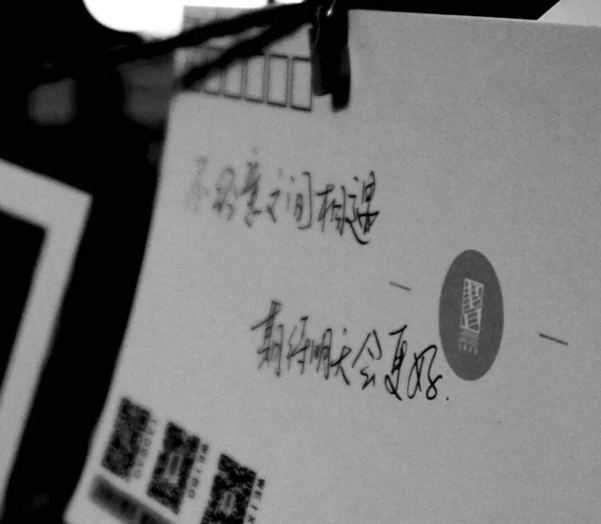 不经意之间相遇
期待明天会更好.
TAOBAO
WEIBO
WEIX